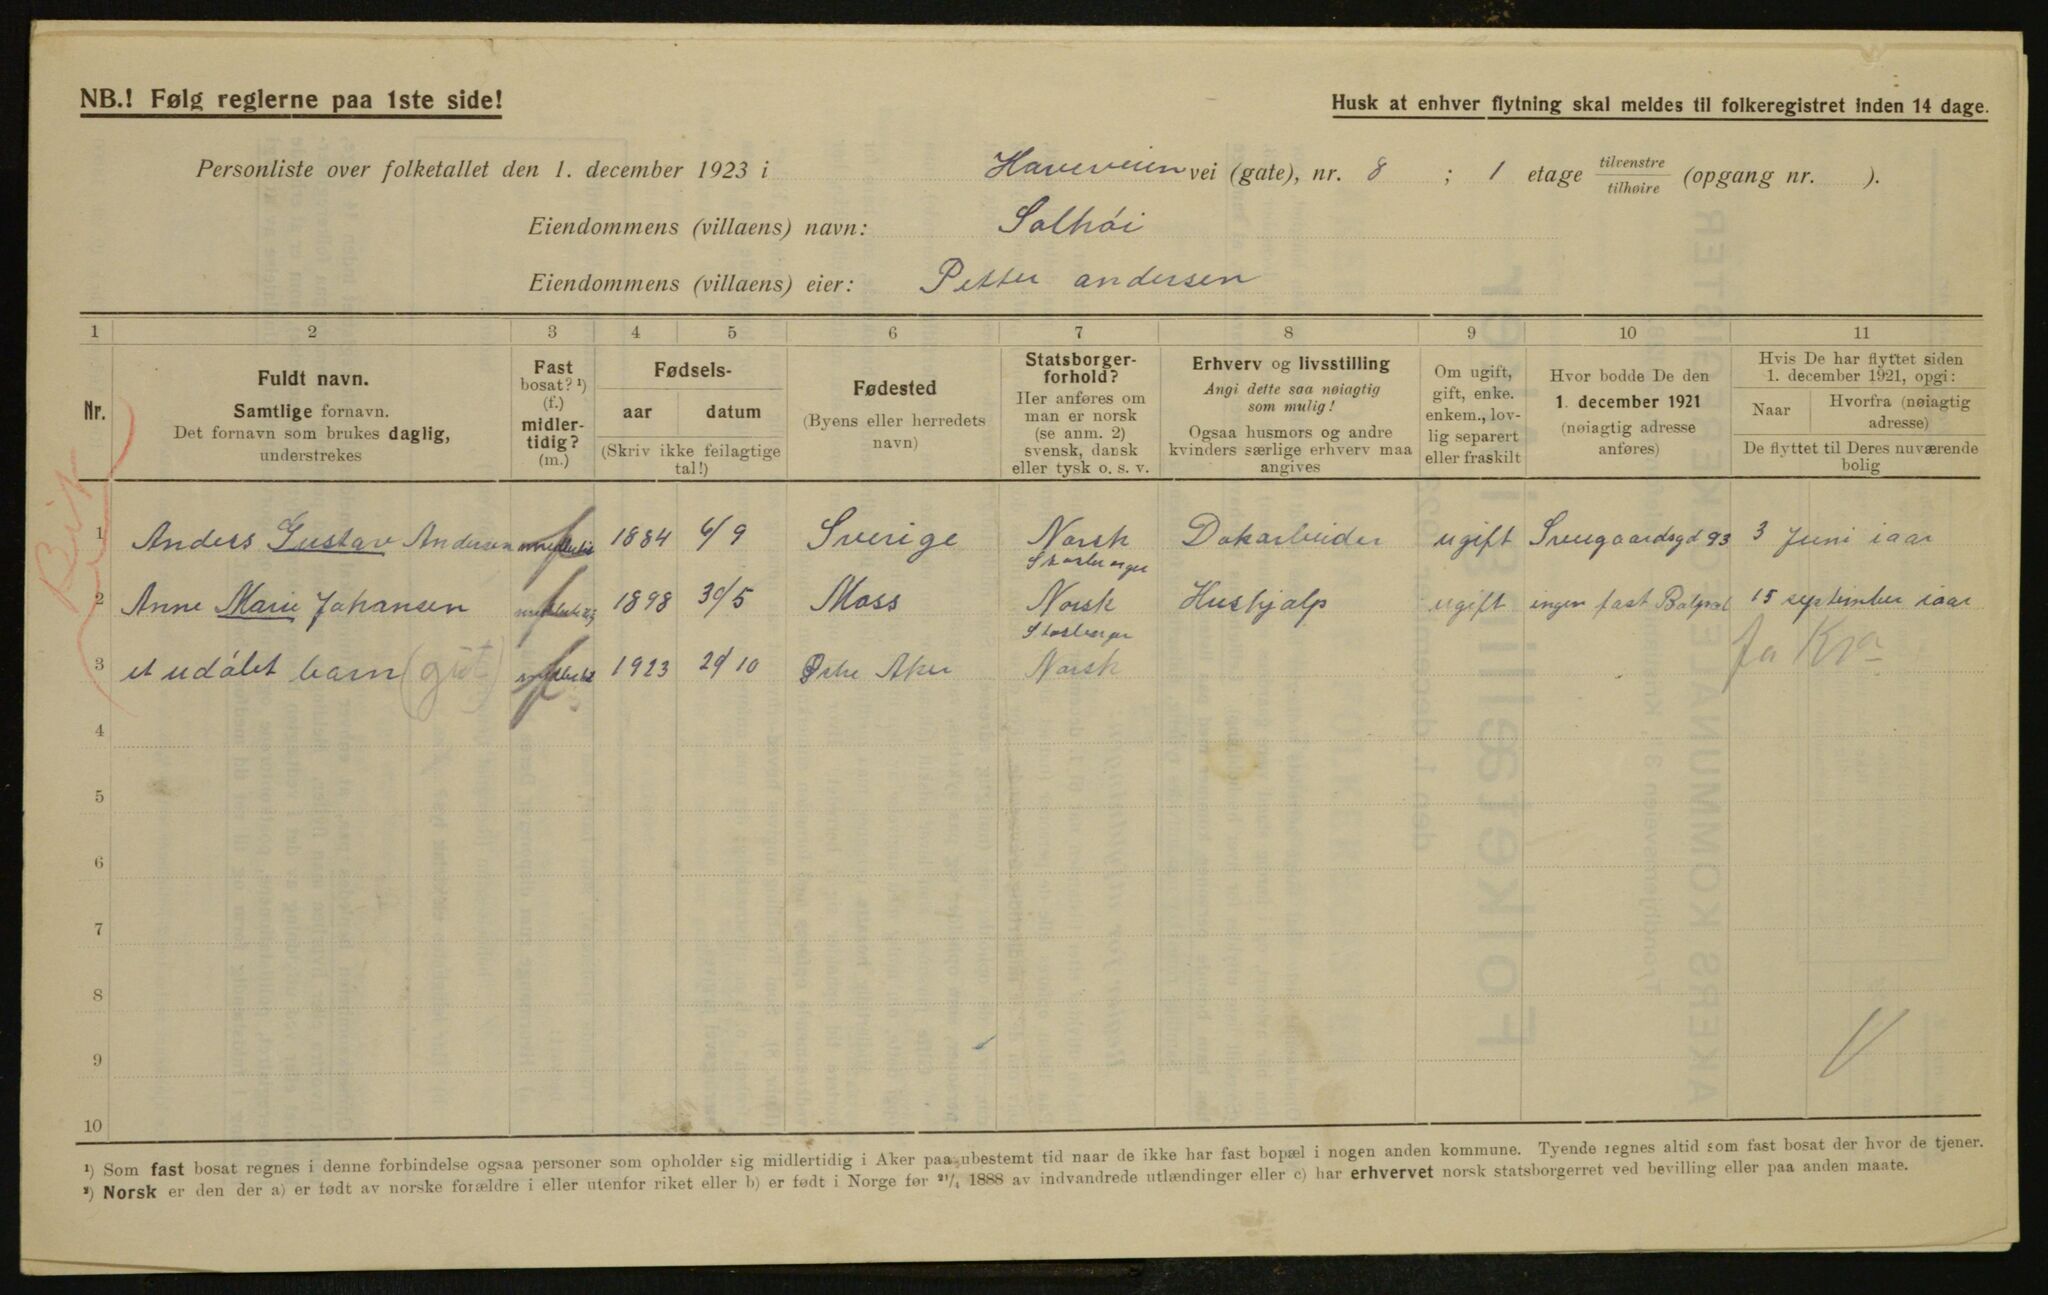 NB.! Følg reglerne paa 1ste side!
Husk at enhver flytning skal meldes til folkeregistret inden 14 dage.
Personliste over folketallet den 1. december 1923 i Haveveien vei (gate), nr. 8 ; 1 etage tilvenstre / tilhøire (opgang nr. ).
Eiendommens (villaens) navn: Solhöi
Eiendommens (villaens) eier: Petter andersen
1 2 3 4 5 6 7 8 9 10 11
Nr.
Fuldt navn.
Samtlige fornavn.
Det fornavn som brukes daglig,
understrekes
Fast
bosat? ¹)
(f.)
midler-
tidig?
(m.)
Fødsels-
aar datum
(Skriv ikke feilagtige
tal!)
Fødested
(Byens eller herredets
navn)
Statsborger-
forhold?
Her anføres om
man er norsk
(se anm. 2)
svensk, dansk
eller tysk o. s. v.
Erhverv og livsstilling
Angi dette saa nøiagtig
som mulig!
Ogsaa husmors og andre
kvinders særlige erhverv maa
angives
Om ugift,
gift, enke.
enkem., lov-
lig separert
eller fraskilt
Hvor bodde De den
1. december 1921
(nøiagtig adresse
anføres)
Hvis De har flyttet siden
1. december 1921, opgi:
Naar
Hvorfra (nøiagtig
adresse)
De flyttet til Deres nuværende
bolig
1 Anders Gustav Andersen f 1884 6/9 Sverige Norsk Dokarbeider ugift 93 3 Juni iaar
2 Anne Marie Johansen f 1898 30/5 Moss Norsk Hushjalp ugift ingen fast Bopæl 15 september iaar
3 et udöbt barn f 1923 29/10 Aker Norsk
fra Kra
4
5
6
7
8
9
10
¹) Som fast bosat regnes i denne forbindelse ogsaa personer som opholder sig midlertidig i Aker paa ubestemt tid naar de ikke har fast bopæl i nogen anden kommune. Tyende regnes altid som fast bosat der hvor de tjener.
²) Norsk er den der a) er født av norske forældre i eller utenfor riket eller b) er født i Norge før ²¹/₄ 1888 av indvandrede utlændinger eller c) har erhvervet norsk statsborgerret ved bevilling eller paa anden maate.